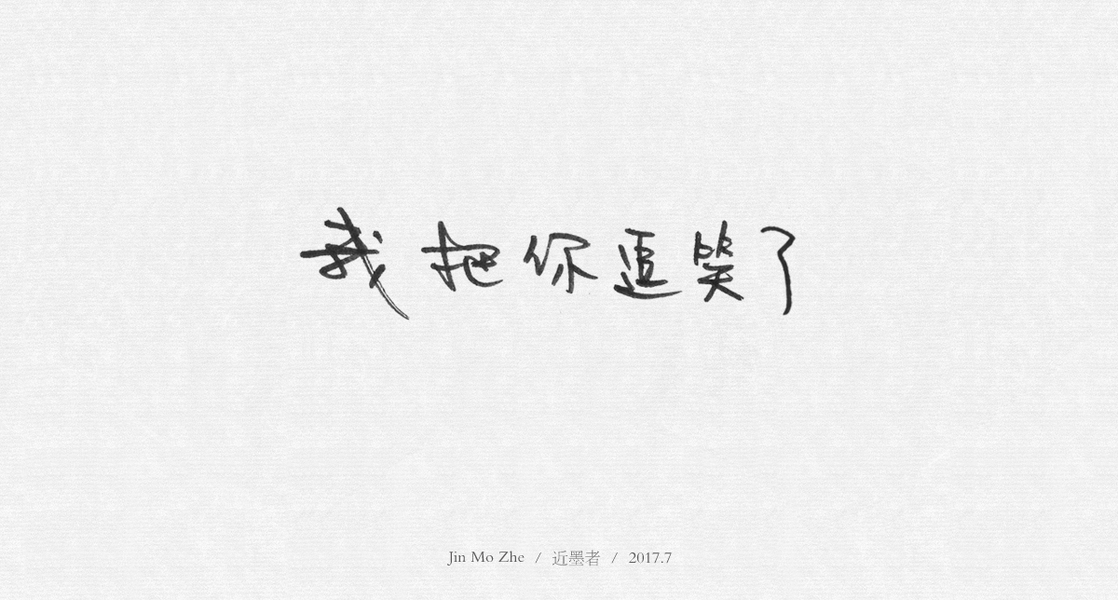 我把你追笑了
Jin Mo Zhe / 近墨者 / 2017.7